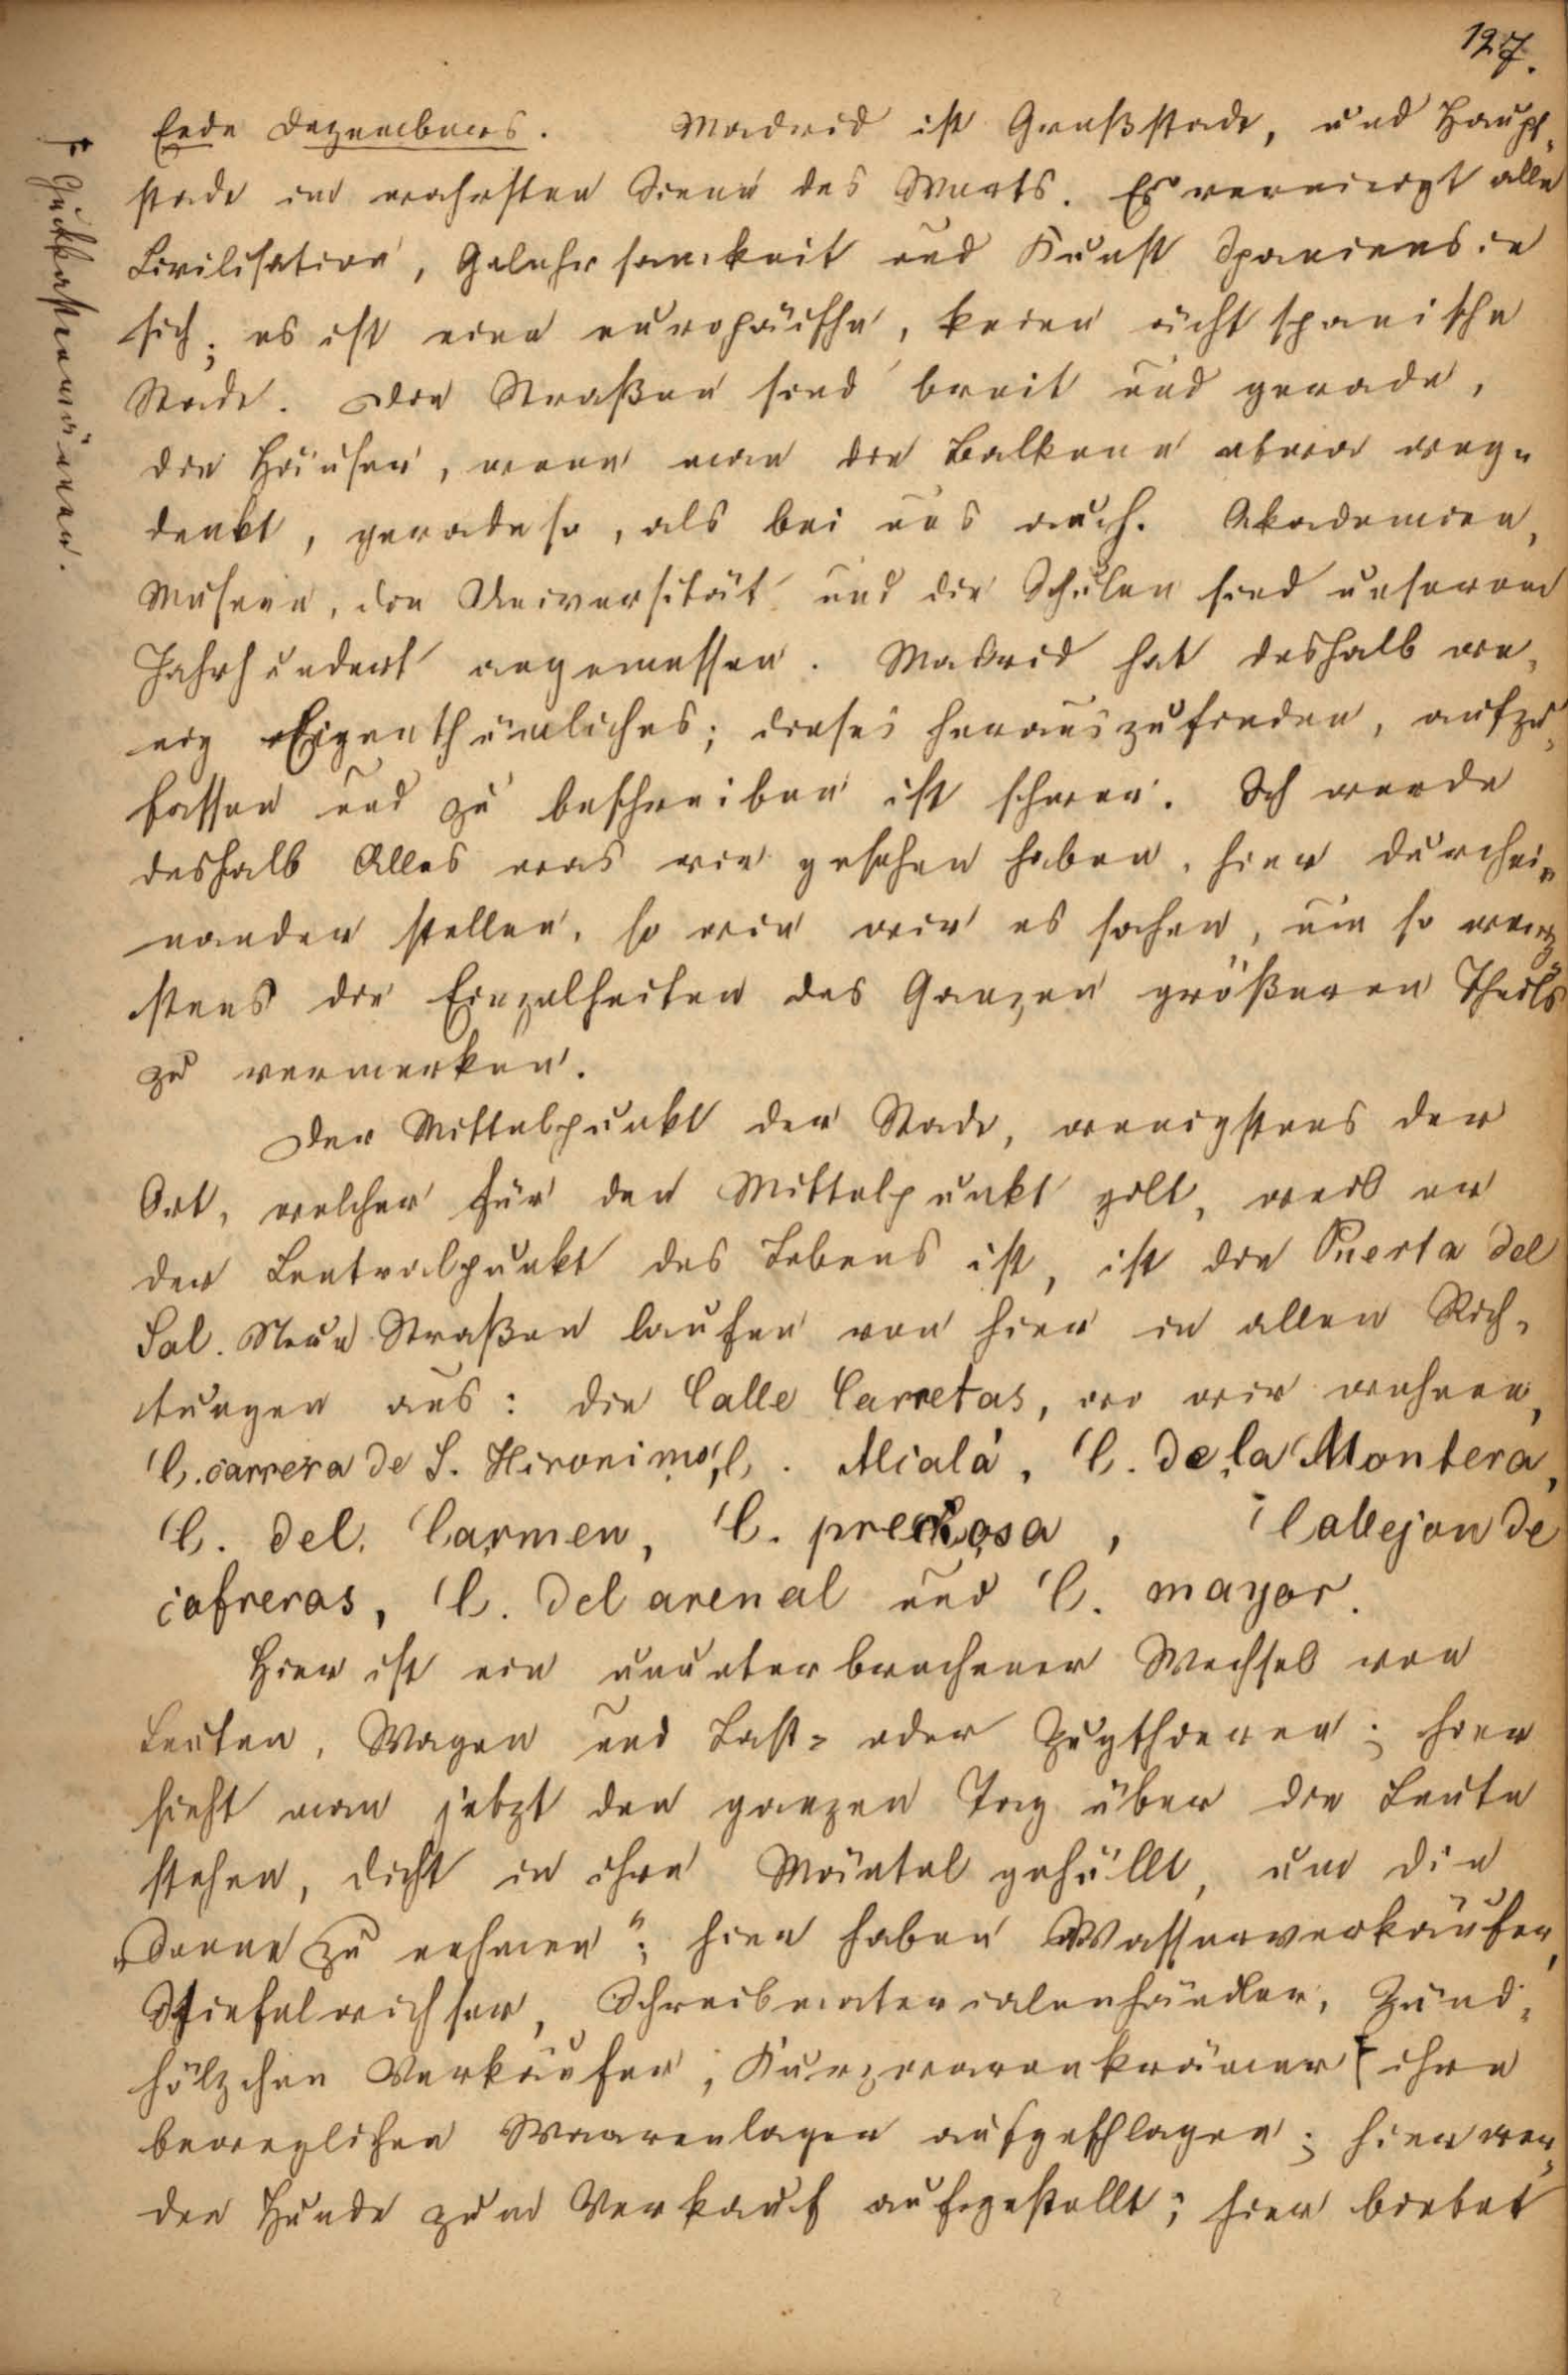 127.
Ende Dezembers. Madrid ist Großstadt, und Haupt-
stadt im wahrsten Sinne des Worts. Es vereinigt alle
Civilisation, Gelehrsamkeit und Kunst Spaniens in
sich; es ist eine europäische, keine ächt spanische
Stadt. Die Straßen sind breit und gerade,
die Häuser, wenn man die Balkone etwa weg-
denkt, gerade so, als bei uns auch. Akademien,
Museen, die Universität und die Schulen sind unserem
Jahrhundert angemessen. Madrid hat deshalb we-
nig Eigenthümliches; dieses herauszufinden, aufzu-
fassen und zu beschreiben ist schwer. Ich werde
deshalb Alles was wir gesehen haben, hier durchei-
nander stellen, so wie wir es sahen, um so wenig-
stens die Einzelheiten des Ganzen größeren Theils
zu vermerken.
Der Mittelpunkt der Stadt, wenigstens der
Ort, welcher für den Mittelpunkt gilt, weil er
der Centralpunkt des Lebens ist, ist die Puerta del
Sol. Neun Straßen laufen von hier in allen Rich-
tungen aus: die Calle Carretas, wo wir wohnen,
C. carrera de S. Hironimo, C. Alcalá, C. de la Montera,
C. del Carmen, C. preciosa, Callejon de
cofreros, C. del arenal und C. mayor.
Hier ist ein ununterbrochener Wechsel von
Leuten, Wagen und Last- oder Zugthieren; hier
sieht man jetzt den ganzen Tag über die Leute
stehen, dicht in ihre Mäntel gehüllt, um die
„Sonne zu nehmen“; hier haben Wasserverkäufer,
Stiefelwichser, Schreibmaterialenhändler, Zünd-
hölzchen Verkäufer, Kurzwarenkrämer ⁒ ihre
beweglichen Waarenlager aufgeschlagen; hier wer-
den Hunde zum Verkauf aufgestellt; hier bietet
⁒ Guckkastenmänner.